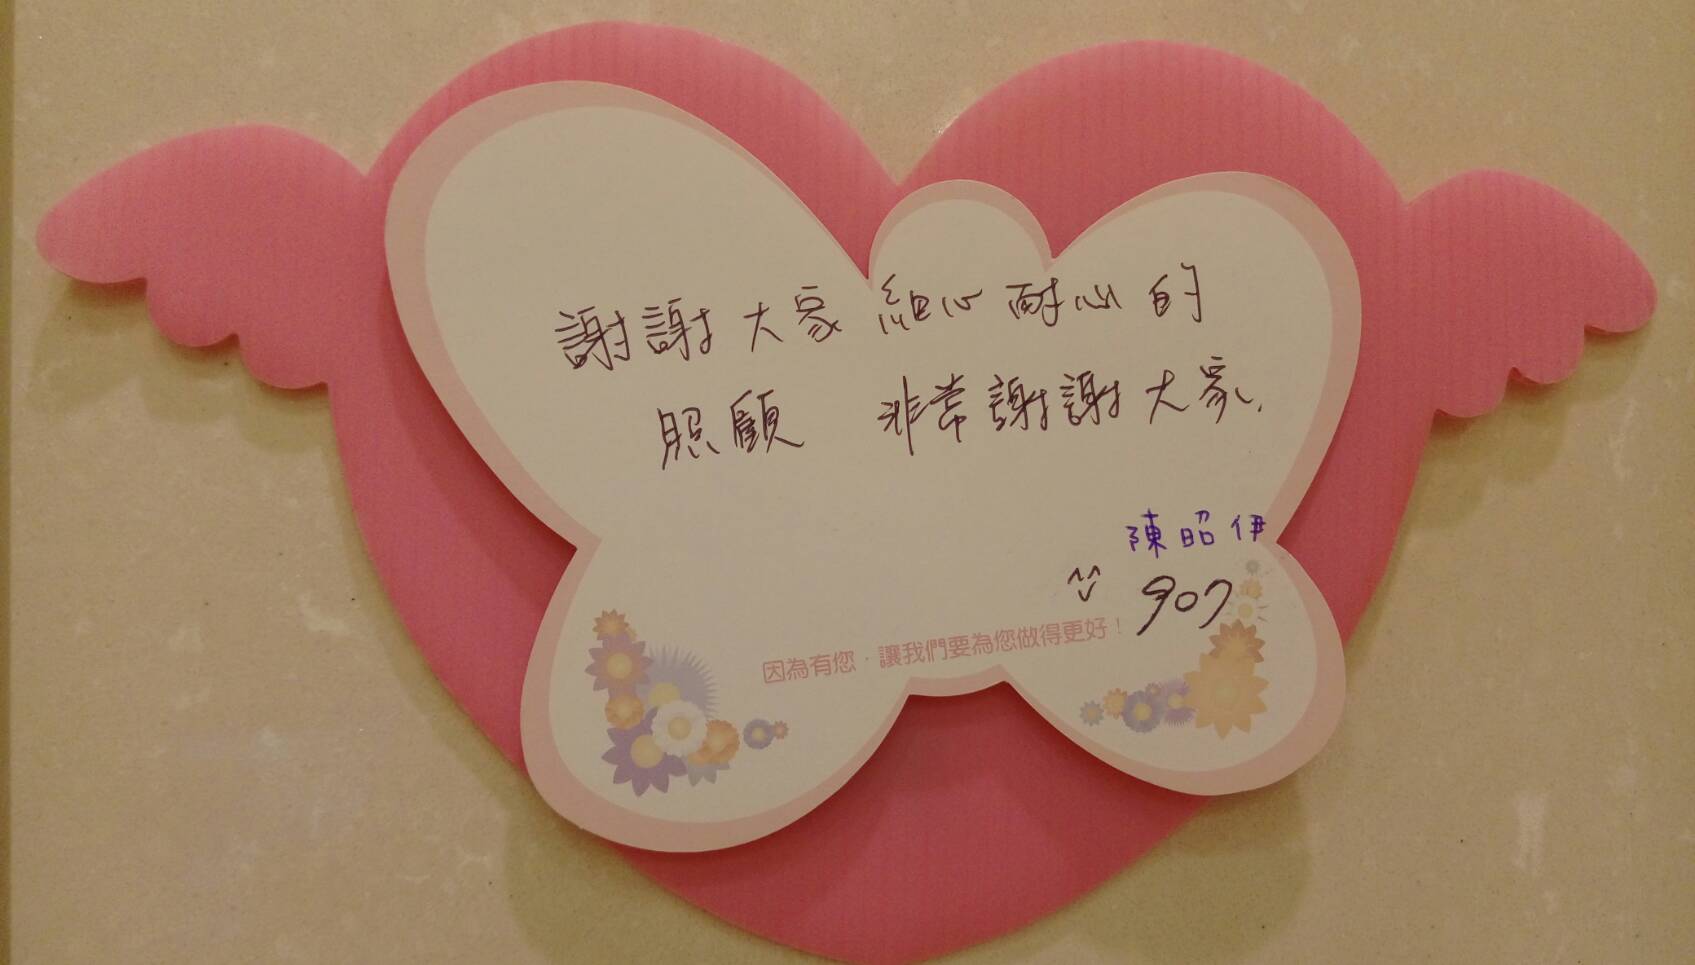 謝謝大家細心耐心的
照顧 非常謝謝大家.
陳昭伊
907
因為有您，讓我們要為您做得更好！